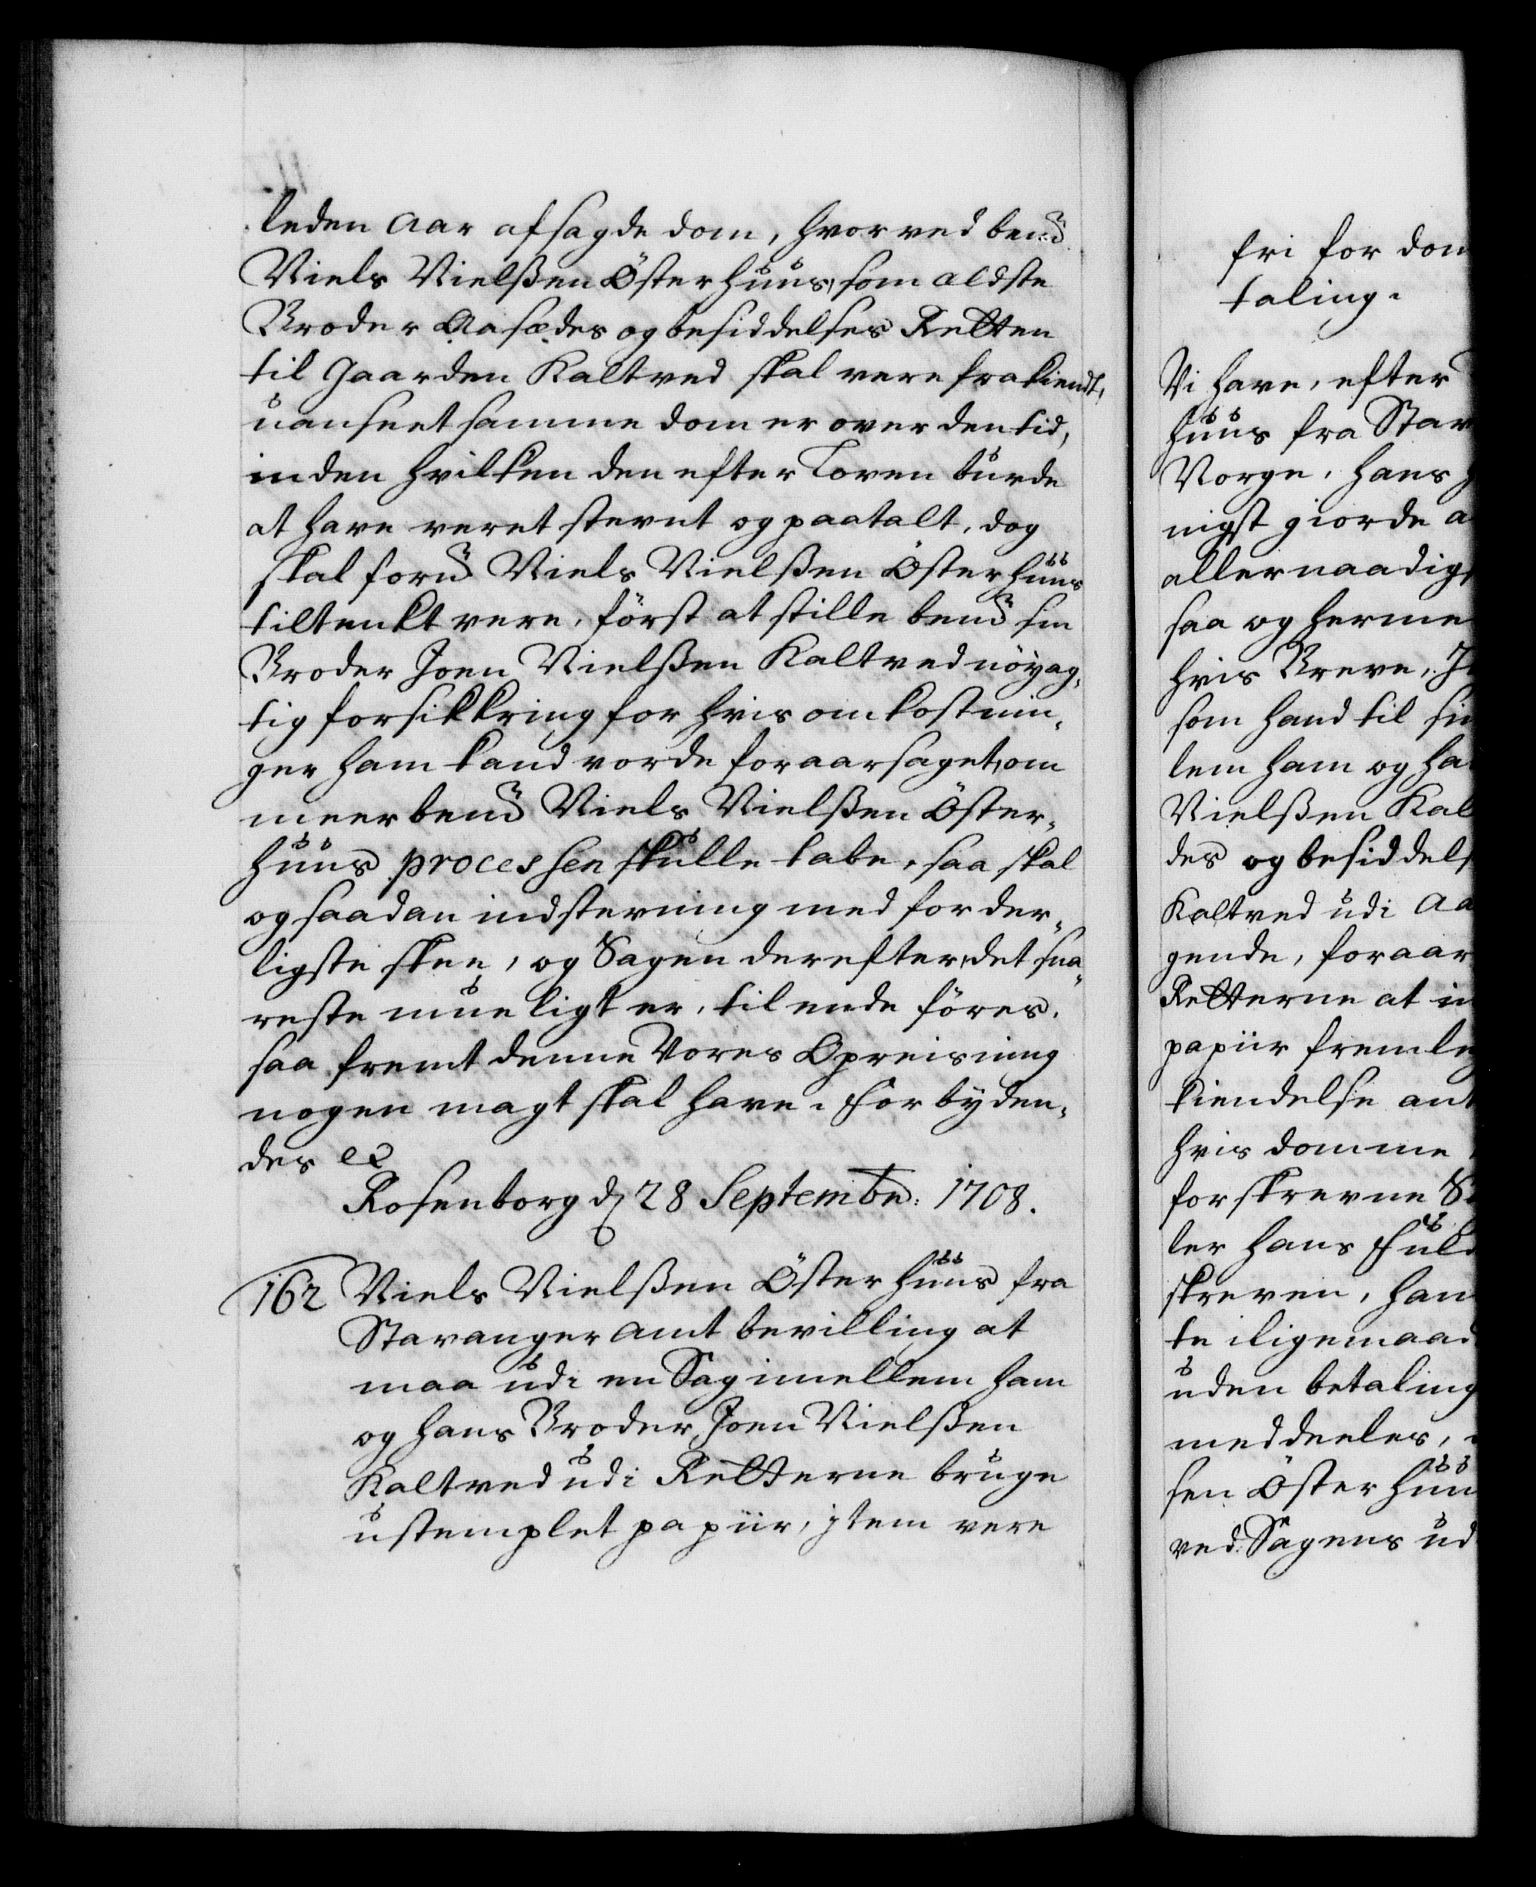 leden Aar afsagde dom, hvorved bemd
Niels Nielßen Österhuus, som aldste
Broder Aasædes og besiddelses Retten
til Gaarden Kaltved skal vere frakiendt,
uanseet samme dom er over den tid,
inden hvilken den efter Loven burde
at have veret stevnt og paatalt, dog
skal forn Niels Nielßen Österhuus
tiltenkt vere, först at stille bemd sin
Broder Joen Nielßen Kaltved nöyag,
tig forsikkring for hvis omkostnin,
ger ham kand vorde foraarsaget, om
meerbemd Niels Nielßen Öster,
huus processen skulle tabe, saa skal
og saadan indstevning med forder,
ligste skee, og Sagen derefter, det sna,
reste mueligt er, til ende föres,
saa fremt denne Vores Opreisning
nogen magt skal have. Forbyden,
des etc
Rosenborg d 28 Septembr: 1708.
162 Niels Nielßen Österhuus fra
Stavanger Amt bevilling at
maa udi en Sag imellem ham
og hans Broder, Joen Nielßen
Kaltved udi Retterne bruge
ustemplet papiir, item vere
fri for dom
taling.
Vi have, efter
huus fra Stav
Norge, hans
nigst giorde a
allernaadigs
saa og herme
hvis Breve,
som hand til sin
lem ham og ha
Nielßen Kal
des og besiddels
Kaltved udi Aa
gende, foraar
Retterne at in
papiir fremle
kiendelse ant
hvis domme
forskrevne S
ler hans Fuld
skreven, han
te iligemaad
uden betaling
meddeeles,
sen Österhuu
ved Sagens ud